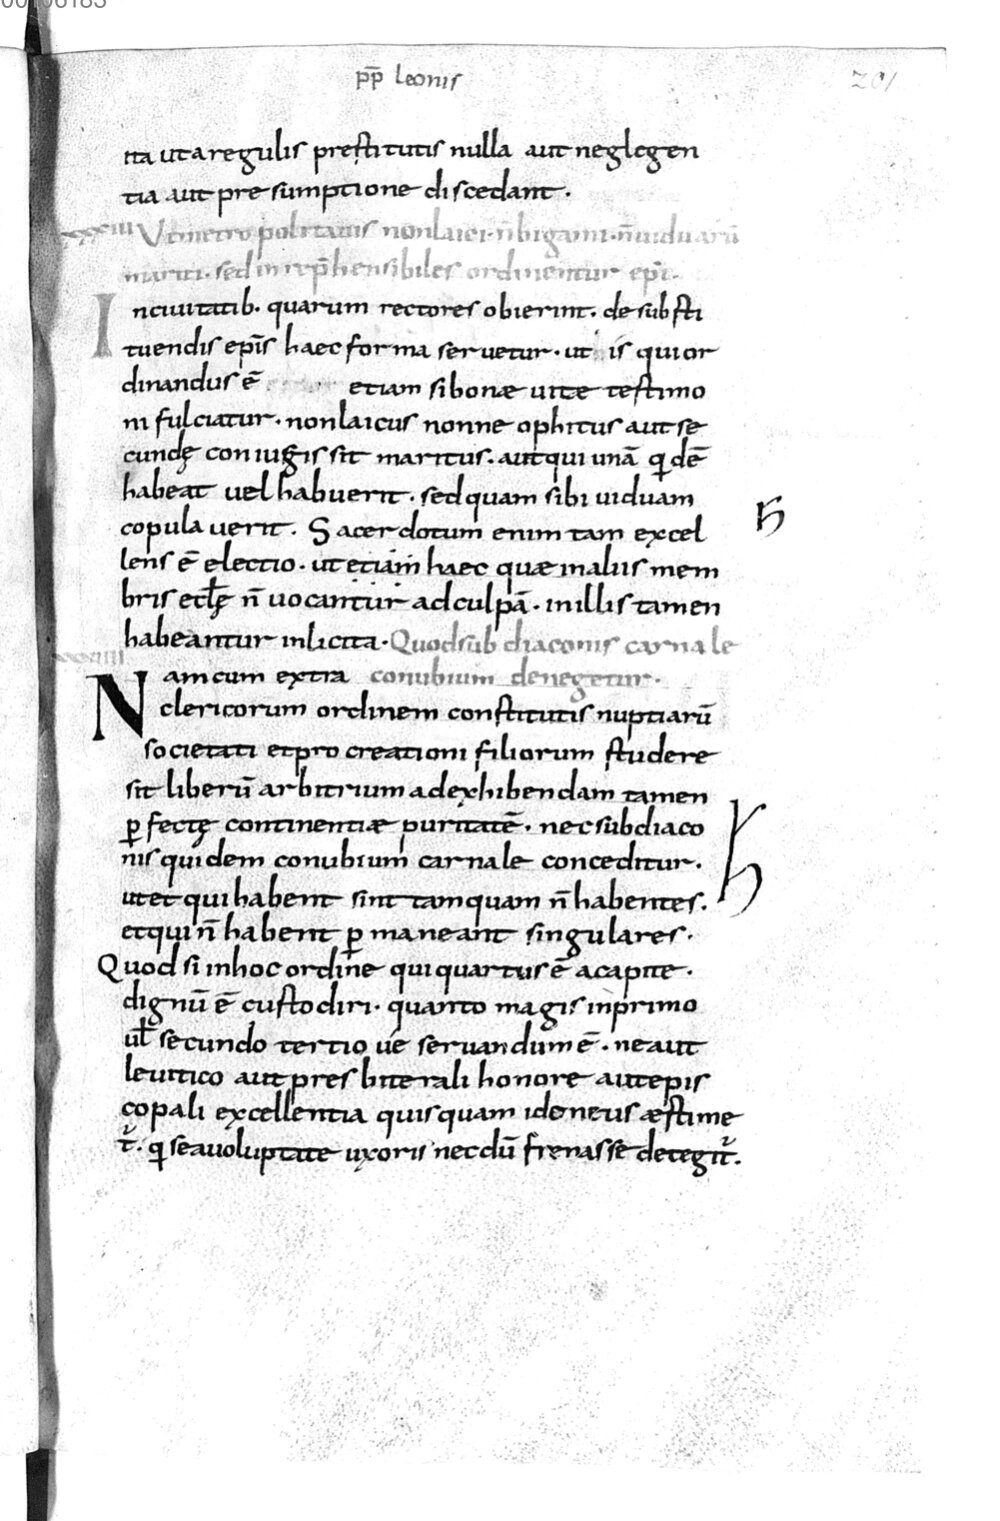 pp̄ leonis
201
ita ut a regulis prestitutis nulla aut neglegen
tia aut presumptione discedant.
xxxiii Ut metropolitanis non laici. n̄ bigami. n̄ uiduarū
mariti. sed inrep̄hensibiles ordinentur ep̄i.
In ciuitatib. quarum rectores obierint. de substi
tuendis ep̄is haec forma seruetur. ut is qui or
dinandus ē etiam si bonae uitae testimo
ni fulciatur. non laicus non neophitus aut se
cundę coniugis sit maritus. aut qui unā qdē
habeat uel habuerit. sed quam sibi uiduam
copulauerit. Sacerdotum enim tam excel
lens ē electio. ut etiam haec quae in aliis mem
bris eclę n̄ uocantur ad culpā. in illis tamen
habeantur inlicita. Quod subdiaconis carnale
xxxiiii conubium denegetur.
Nam cum extra
clericorum ordinem constitutis nuptiarū
societati et procreationi filiorum studere
sit liberū arbitrium ad exhibendam tamen
p̱fectę continentiae puritatē. nec subdiaco
nis quidem conubium carnale conceditur.
ut et qui habent sint tamquam n̄ habentes.
et qui n̄ habent p̱maneant singulares.
Quod si in hoc ordine qui quartus ē a capite.
dignū ē custodiri. quanto magis in primo
ul̄ secundo tertio ue seruandum ē. ne aut
leuitico aut presbiterali honore aut epis
copali excellentia quisquam idoneus aestime
t̄. q se a uoluptate uxoris necdū frenasse detegit̄.